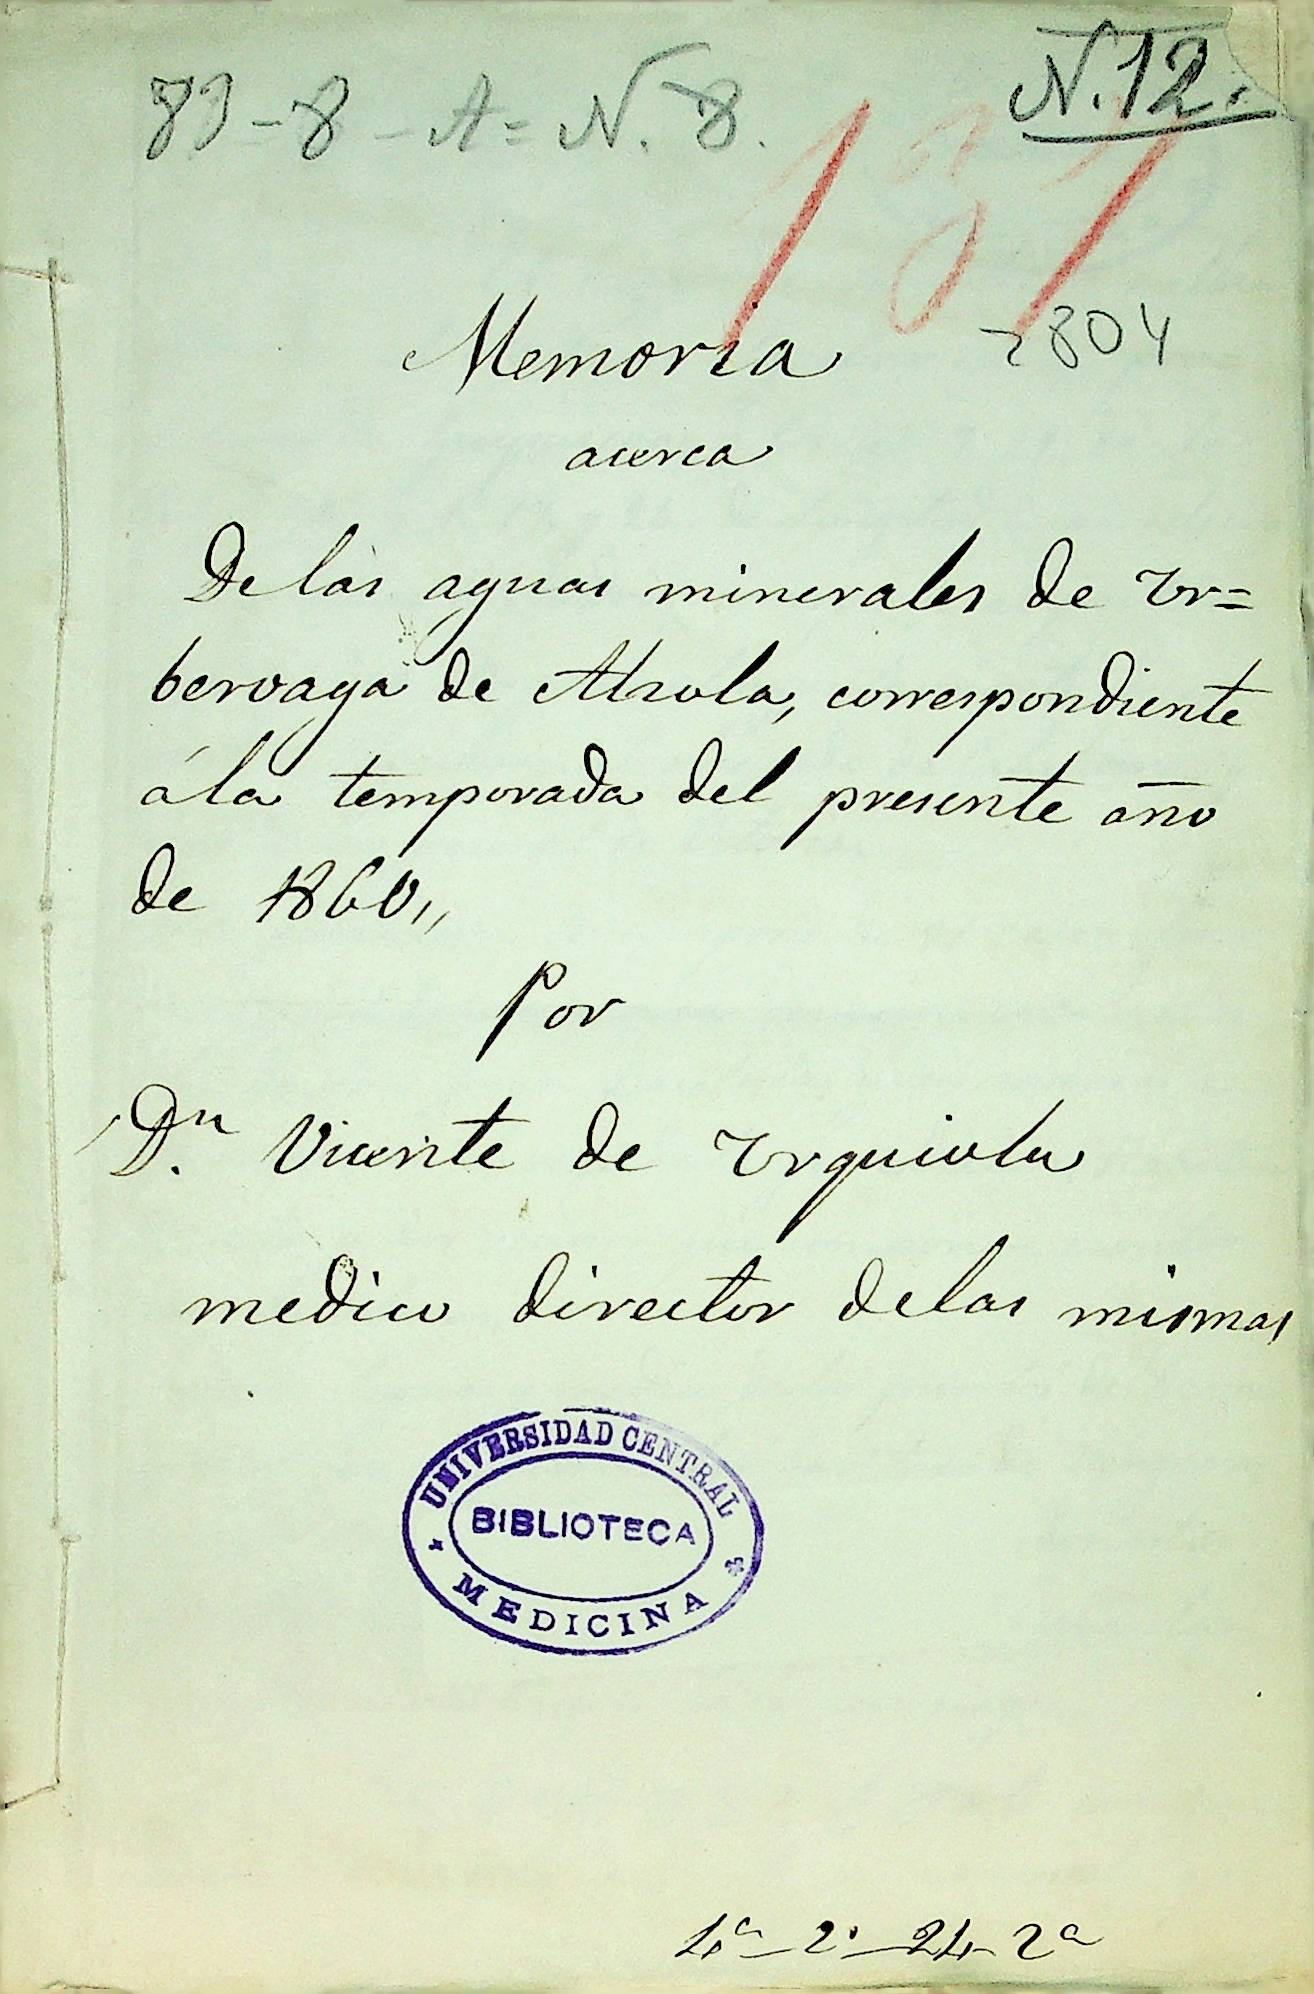 83-8-A=N.8.
N.12.
137
2804
Memoria
acerca
De las aguas minerales de Ur=
beroaga de Alzola, correspondiente
á la temporada del presente año
de 1860,,
Por
Dn. Vicente de Urquiola
medico director delas mismas
UNIVERSIDAD CENTRAL
BIBLIOTECA
MEDICINA
4a-2o-24-2a